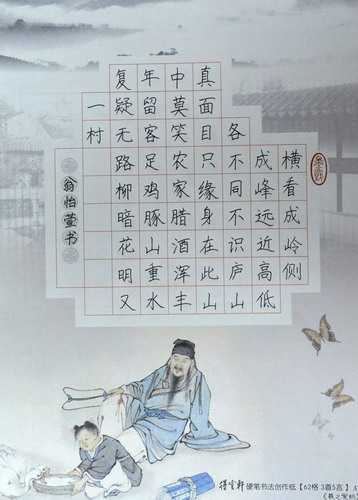 横看成岭侧
成峰远近高低
各不同不识庐山
真面目只缘身在此山
中莫笑农家腊酒浑丰
年留客足鸡豚山重水
复疑无路柳暗花明又
一村
翁怡萱书
硬笔书法创作纸【62格 3首5言】